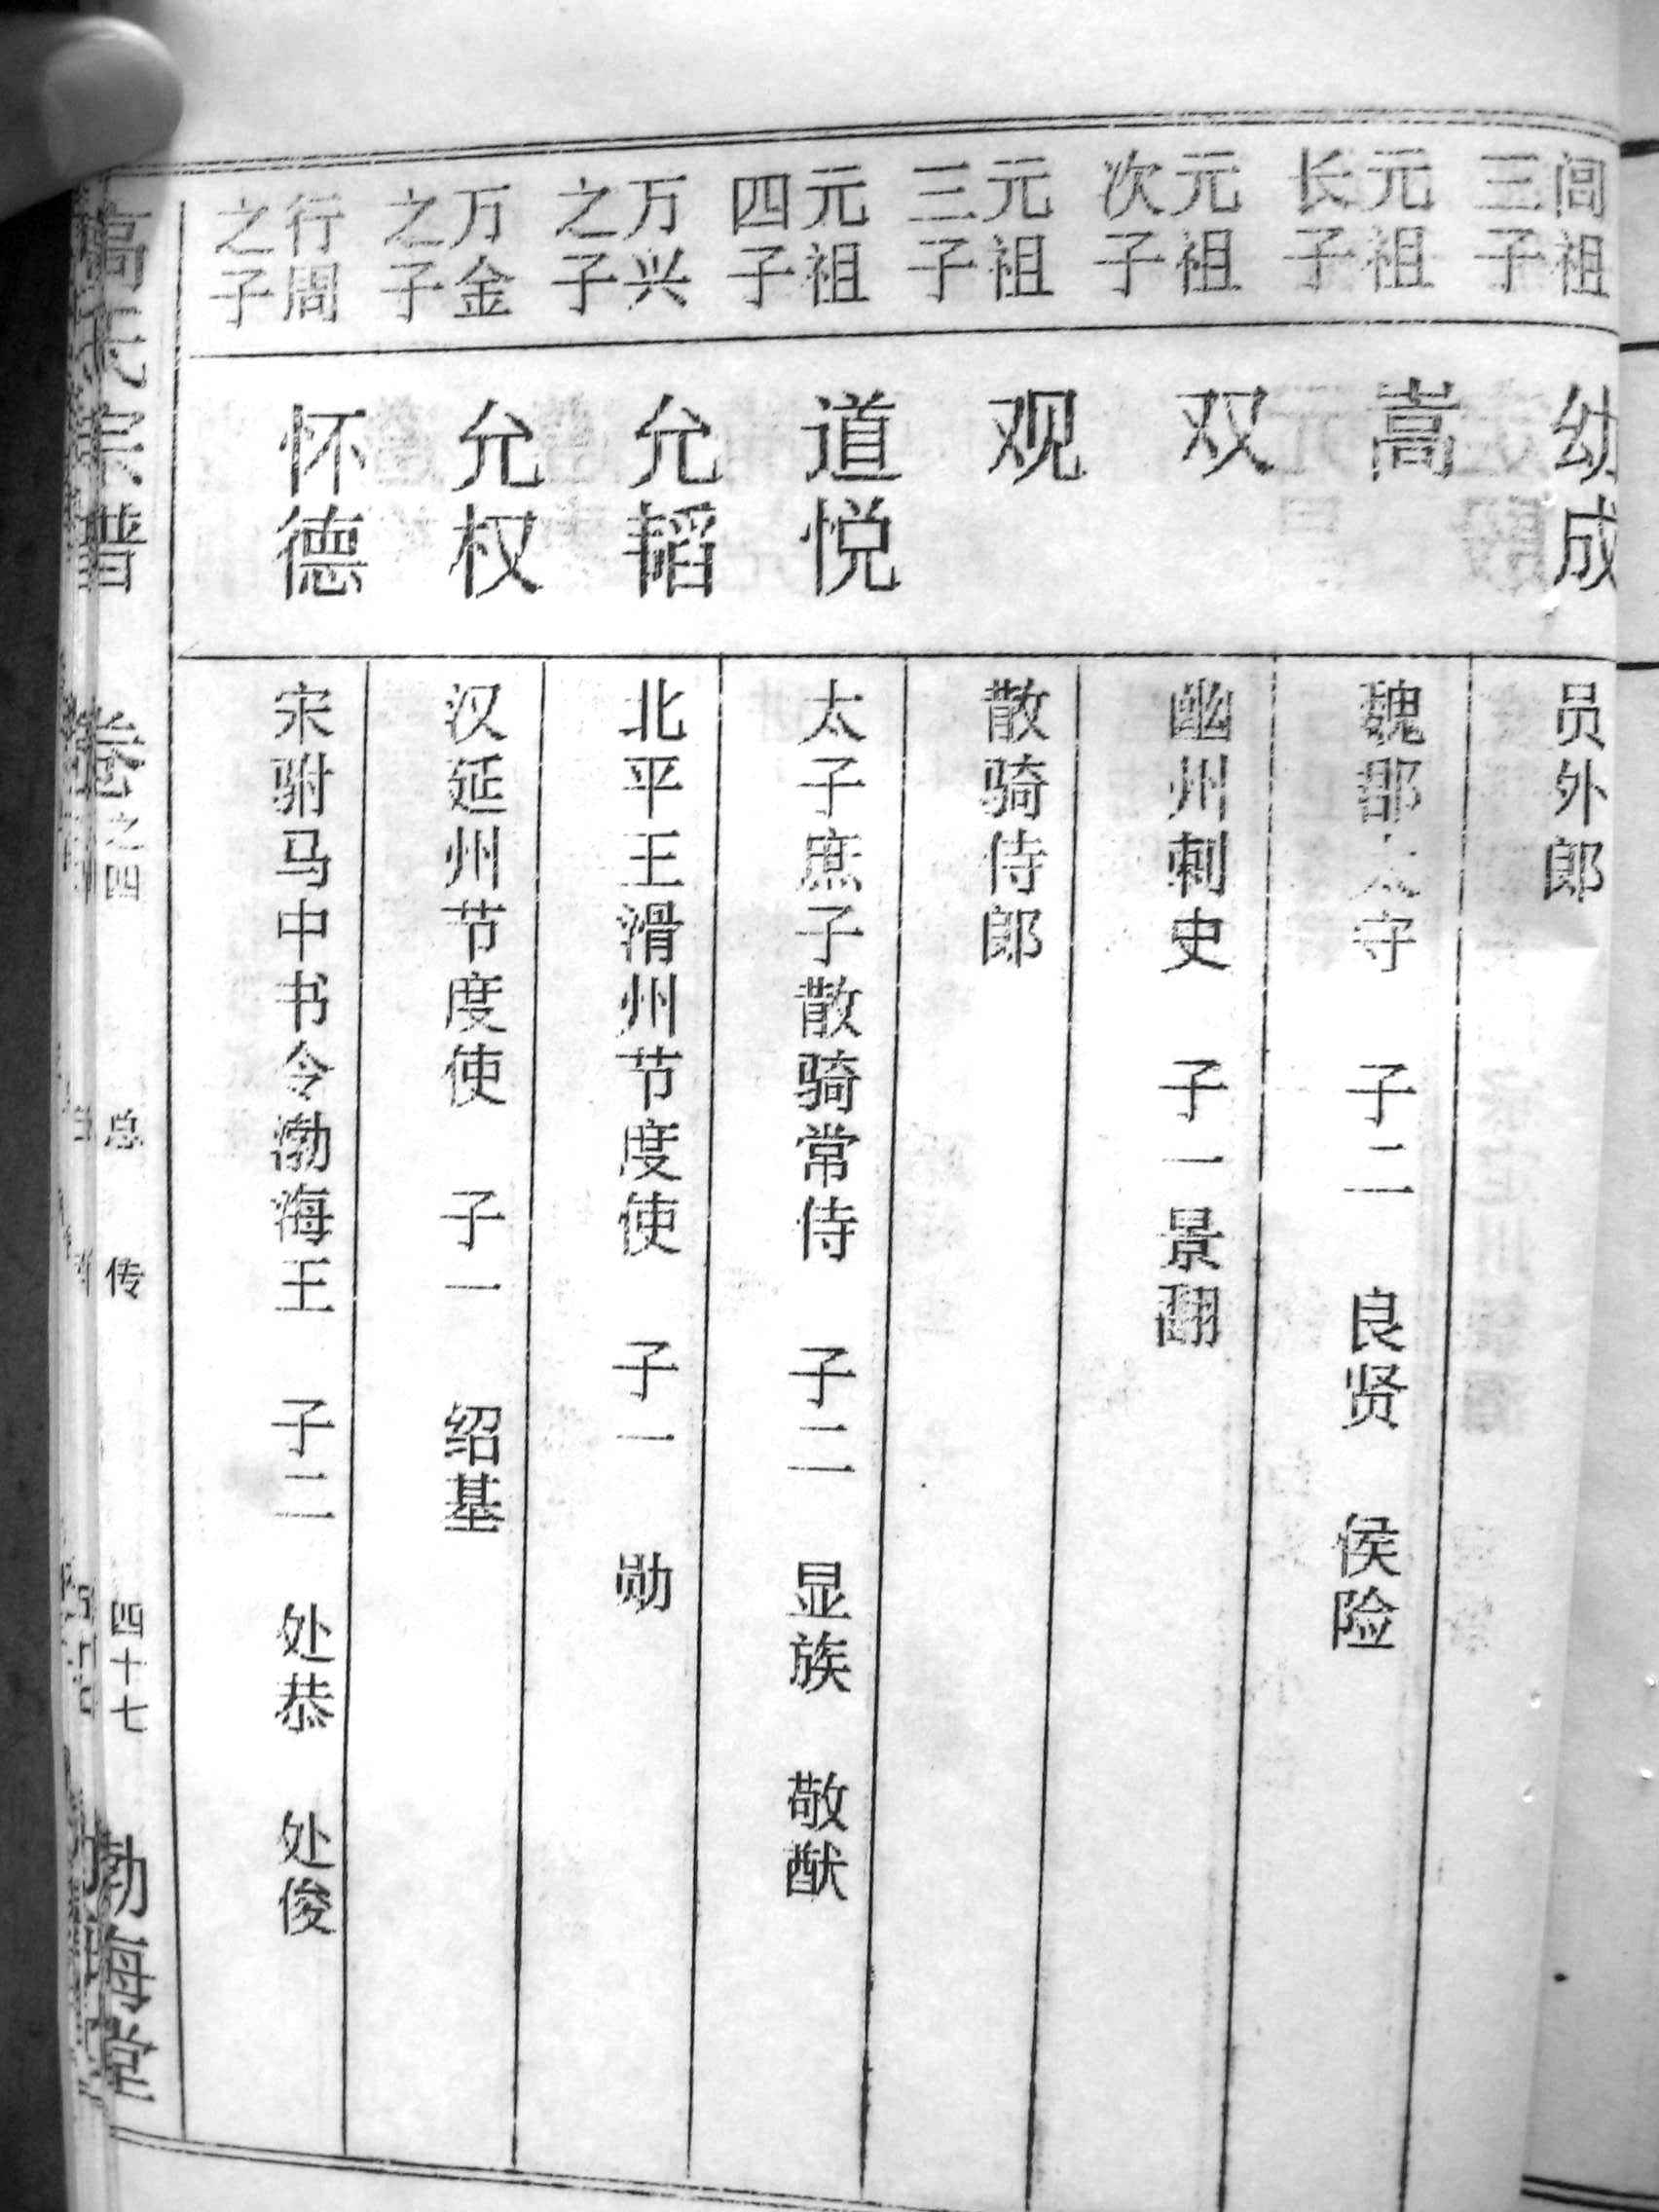 闾祖三子
幼成
员外郎
元祖长子
嵩
魏郡太守 子二 良贤 侯险
元祖次子
双
幽州刺史 子一景翻
元祖三子
观
散骑侍郎
元祖四子
道悦
太子庶子散骑常侍 子二 显族 敬猷
万兴之子
允韬
北平王滑州节度使 子一 勋
万金之子
允权
汉延州节度使 子一 绍基
行周之子
怀德
宋驸马中书令渤海王 子二 处恭 处俊
高氏宗谱 卷之四 总传 四十七 渤海堂